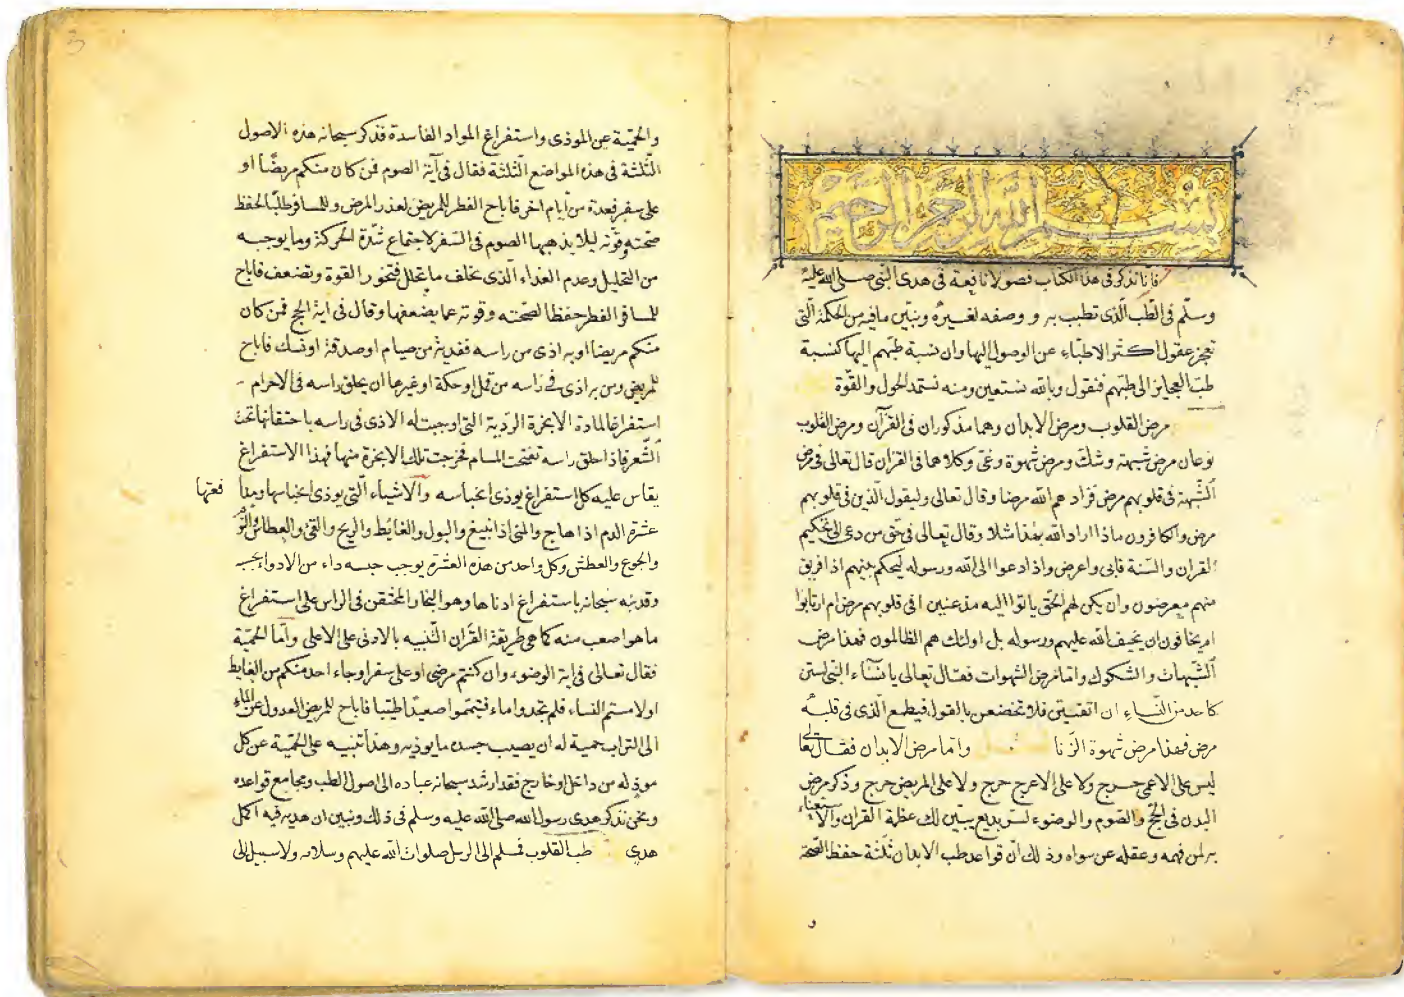 بسم الله الرحمن الرحيم
فانا نذكر في هذا الكتاب فصولا نافعة في هدى النبي صلى الله عليه
وسلم في الطب الذي تطبب به ووصفه لغيره ونبين ما فيه من الحكمة التي
تعجز عقول اكثر الاطباء عن الوصول اليها وان نسبة طبهم اليها كنسبة
طب العجايز الى طبهم فنقول وبالله نستعين ومنه نستمد الحول والقوة
مرض القلوب ومرض الابدان وهما مذكوران في القرآن ومرض القلوب
نوعان مرض شبهة وشك ومرض شهوة وغي وكلاهما في القران قال تعالى في مرض
الشبهة في قلوبهم مرض فزادهم الله مرضا وقال تعالى وليقول الذين في قلوبهم
مرض والكافرون ماذا اراد الله بهذا مثلا وقال تعالى في حق من دعى الى تحكيم
القران والسنة فابى واعرض واذا دعوا الى الله ورسوله ليحكم بينهم اذا فريق
منهم معرضون وان يكن لهم الحق ياتوا اليه مذعنين افي قلوبهم مرض ام ارتابوا
ام يخافون ان يحيف الله عليهم ورسوله بل اولئك هم الظالمون فهذا مرض
الشبهات والشكوك واما مرض الشهوات فقال تعالى يا نساء النبي لستن
كاحد من النساء ان اتقيتن فلا تخضعن بالقول فيطمع الذي في قلبه
مرض فهذا مرض شهوة الزنا واما مرض الابدان فقال تعالى
ليس على الاعمى حرج ولا على الاعرج حرج ولا على المريض حرج وذكر مرض
البدن في الحج والصوم والوضوء لسر بديع يبين لك عظمة القران والاستغناء
به لمن فهمه وعقله عن سواه وذلك ان قواعد طب الابدان ثلثة حفظ الصحة
و
والحمية عن الموذى واستفراغ المواد الفاسدة فذكر سبحانه هذه الاصول
الثلثة في هذه المواضع الثلثة فقال في آية الصوم فمن كان منكم مريضا او
على سفر فعدة من أيام اخر فاباح الفطر للمريض لعذر المرض وللمسافر طلبا لحفظ
صحته وقوته ليلا يذهبها الصوم في السفر لاجتماع شدة الحركة وما يوجبه
من التحليل وعدم الغذاء الذي يخلف ما تحلل فتخور القوة وتضعف فاباح
للمسافر الفطر حفظا لصحته وقوته عما يضعفها وقال في اية الحج فمن كان
منكم مريضا او به اذى من راسه ففدية من صيام او صدقة او نسك فاباح
للمريض ومن به اذى في راسه من قمل او حكة او غيرها ان يحلق راسه في الاحرام
استفراغا لمادة الابخرة الردية التي اوجبت له الاذى في راسه باحتقانها تحت
الشعر فاذا حلق راسه تفتحت المسام فخرجت تلك الابخرة منها فهذا الاستفراغ
يقاس عليه كل استفراغ يوذى انحباسه والاشياء التي يوذى انحباسها ومدافعتها
عشرة الدم اذا هاج والمنى اذا تبيغ والبول والغايط والريح والقئ والعطاس والنوم
والجوع والعطش وكل واحد من هذه العشرة يوجب حبسه داء من الادواء بحسبه
وقد نبه سبحانه باستفراغ ادناها وهو البخار المحتقن في الراس على استفراغ
ما هو اصعب منه كما هي طريقة القرآن التنبيه بالادنى على الاعلى واما الحمية
فقال تعالى في اية الوضوء وان كنتم مرضى او على سفر او جاء احد منكم من الغايط
او لامستم النساء فلم تجدوا ماء فتيمموا صعيدا طيبا فاباح للمريض العدول عن الماء
الى التراب حمية له ان يصيب جسده ما يوذيه وهذا تنبيه على الحمية عن كل
موذ له من داخل او خارج فقد ارشد سبحانه عباده الى اصول الطب ومجامع قواعده
ونحن نذكر هدى رسول الله صلى الله عليه وسلم في ذلك ونبين ان هديه فيه اكمل
هدى طب القلوب فمسلم الى الرسل صلوات الله عليهم وسلامه ولا سبيل الى